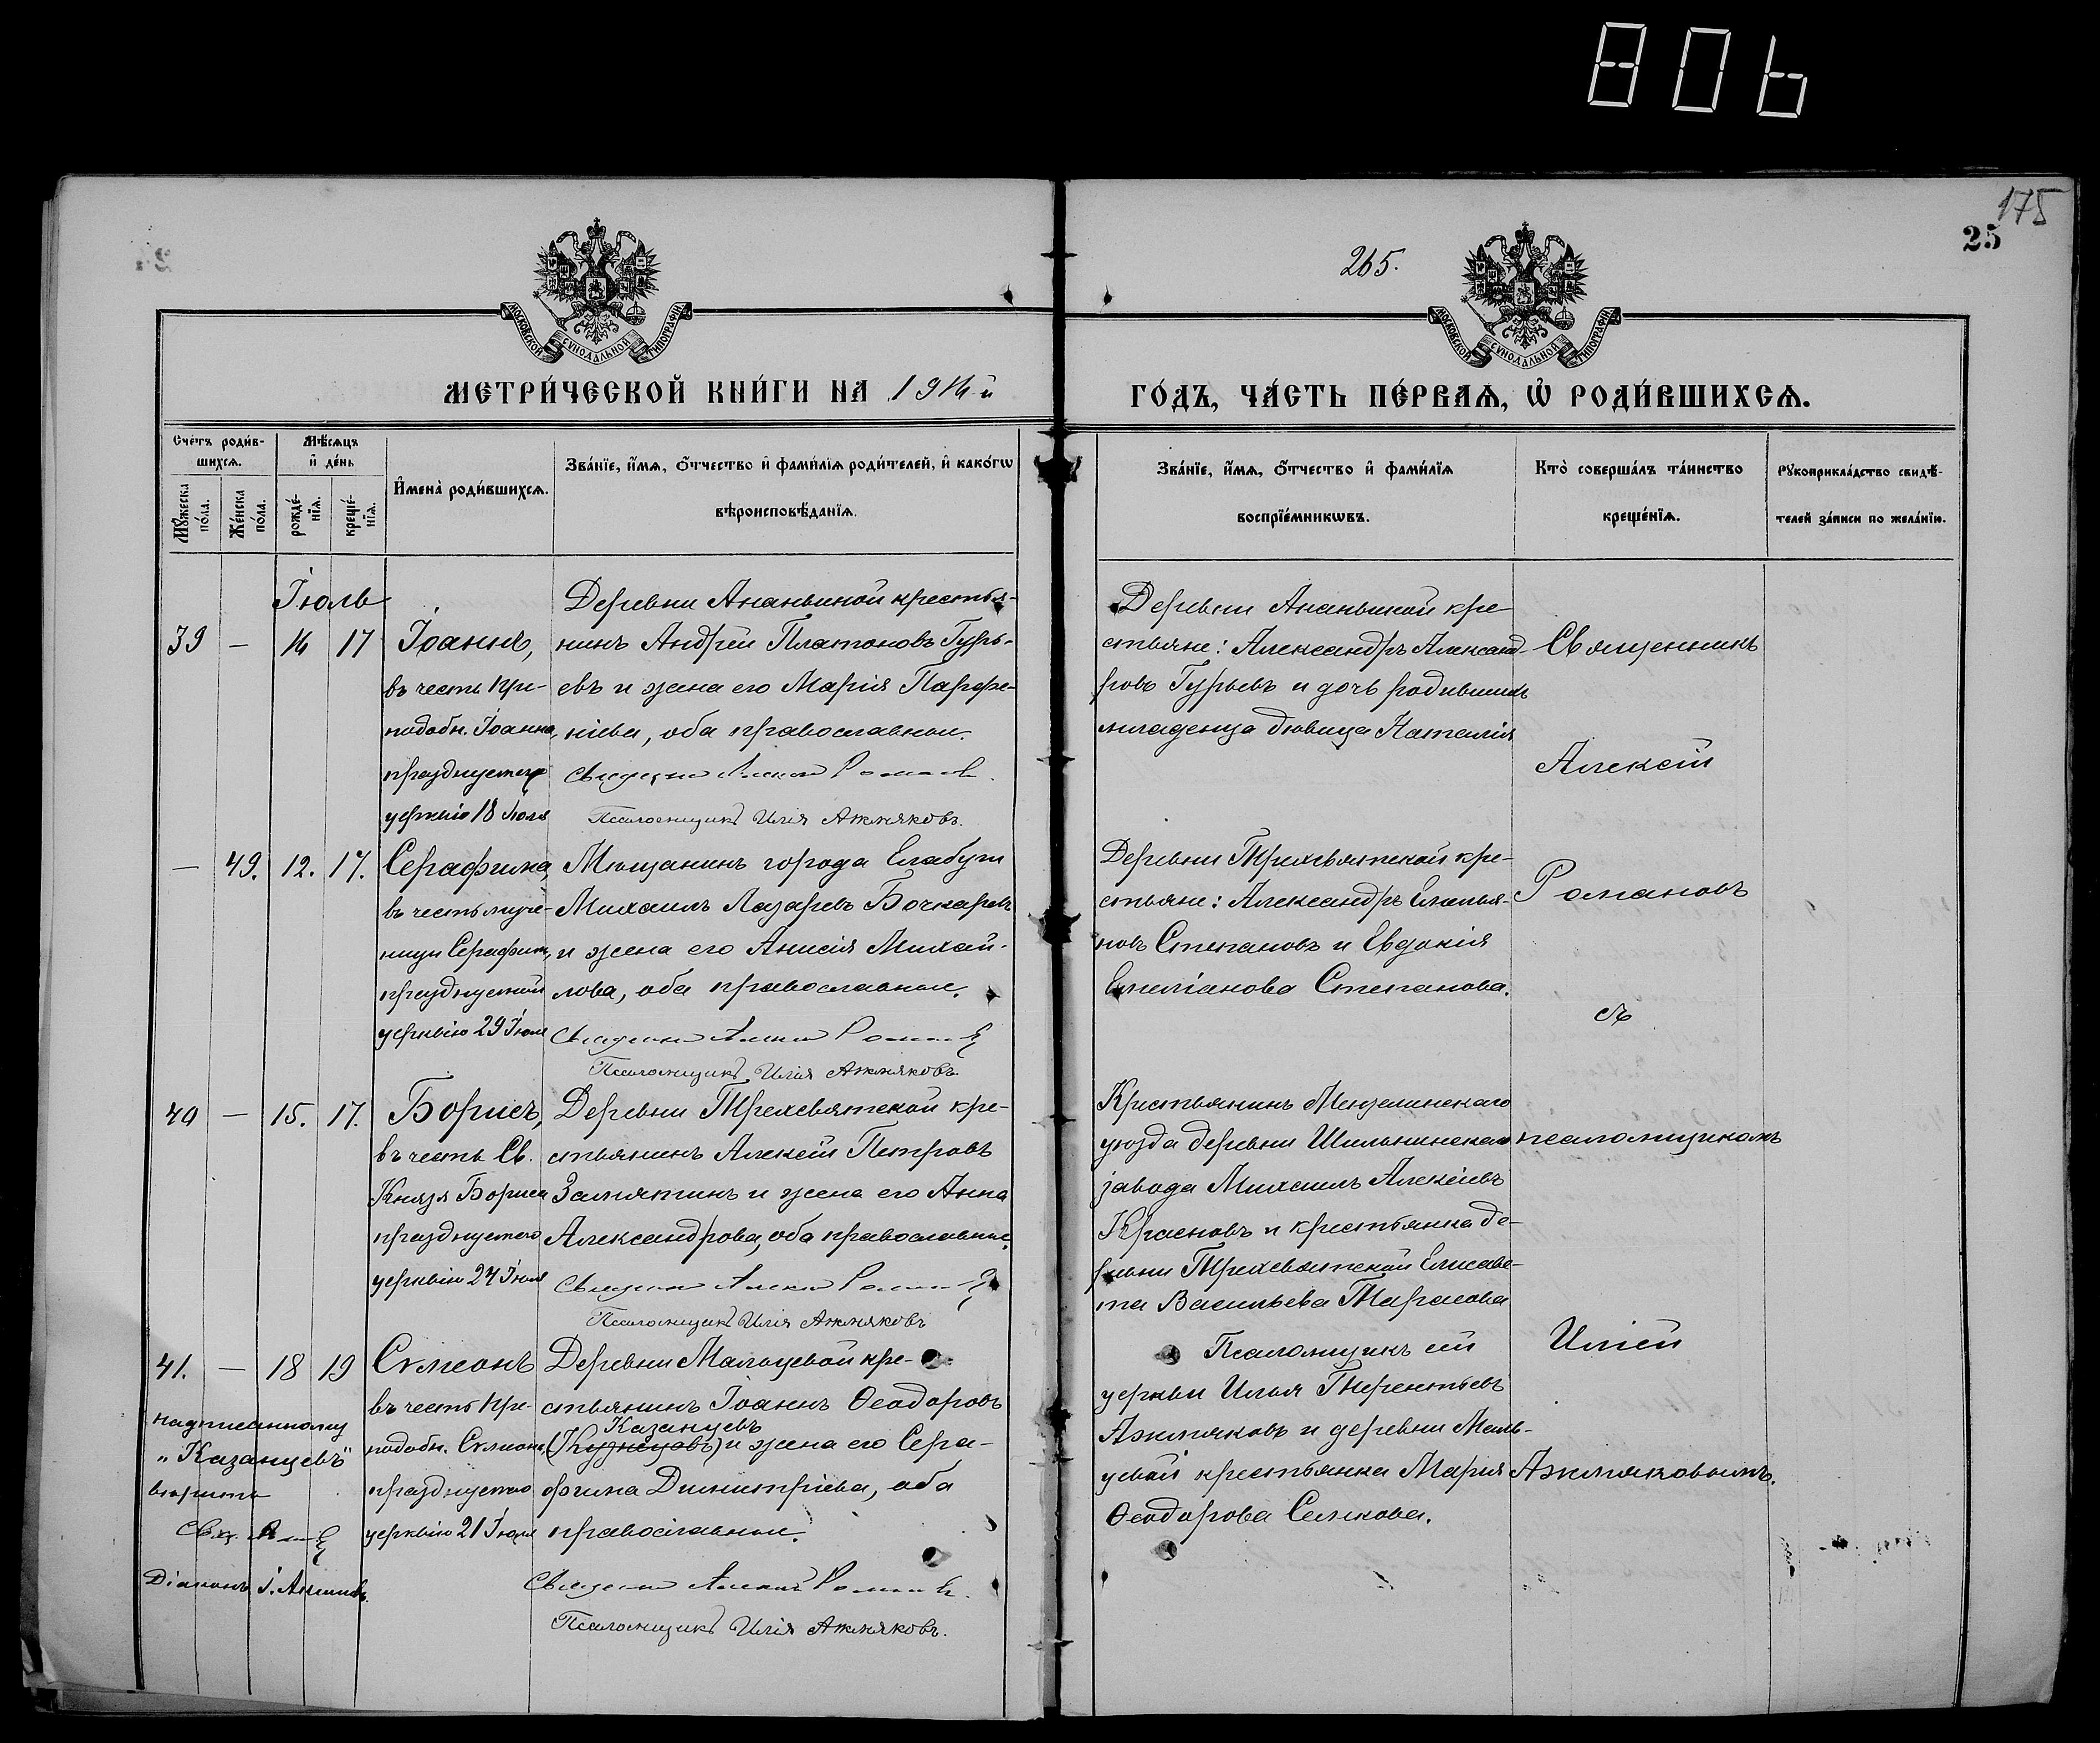 806
175
25
265.
МОСКОВСКОЙ СѴНОДАЛЬНОЙ ТИПОГРАФІИ
МОСКОВСКОЙ СѴНОДАЛЬНОЙ ТИПОГРАФІИ
МЕТРИ́ЧЕСКОЙ КНИ́ГИ НА 1914-й
ГО́ДЪ, ЧА́СТЬ ПЕ́РВАѦ, Ѡ҆ РОДИ́ВШИХСѦ.
Сче́тъ роди́в-
шихсѧ.
Мѣ́сѧцъ
и҆ де́нь
Мꙋ́жеска
по́ла.
Же́нска
по́ла.
рожде́-
нїѧ.
креще́-
нїѧ.
И҆мена̀ роди́вшихсѧ.
Зва́нїе, и҆́мѧ, ѻ҆́тчество и҆ фами́лїѧ роди́телей, и҆ како́гѡ
вѣроисповѣ́данїѧ.
Зва́нїе, и҆́мѧ, ѻ҆́тчество и҆ фами́лїѧ
воспрїе́мникѡвъ.
Кто̀ соверша́лъ та́инство
креще́нїѧ.
Рꙋкоприкла́дство свидѣ́-
телей за́писи по жела́нїю.
Іюль
39 — 16 17
Іоаннъ,
въ честь пре-
подобн. Іоанна,
празднуемаго
церквію 18 Іюля
Деревни Ананьиной крестья-
нинъ Андрей Платоновъ Гурь-
евъ и жена его Марія Парѳе-
ніева, оба православные.
Священникъ Алексій Романовъ.
Псаломщикъ Илія Ажмяковъ.
Деревни Ананьиной кре-
стьяне: Александръ Александ-
ровъ Гурьевъ и дочь родившихъ
младенца дѣвица Наталія
— 49. 12. 17.
Серафима,
въ честь муче-
ницы Серафимы,
празднуемой
церквію 29 Іюля
Мѣщанинъ города Елабуги
Михаилъ Лазаревъ Бочкаревъ
и жена его Анисія Михай-
лова, оба православные.
Священникъ Алексій Романовъ
Псаломщикъ Илія Ажмяковъ
Деревни Трехсвятской кре-
стьяне: Александръ Емелья-
новъ Степановъ и Евдокія
Емеліанова Степанова.
40 — 15. 17.
Борисъ,
въ честь Св.
Князя Бориса
празднуемаго
церквію 24 Іюля
Деревни Трехсвятской кре-
стьянинъ Алексій Петровъ
Замятинъ и жена его Анна
Александрова, оба православные.
Священникъ Алексій Романовъ
Псаломщикъ Илія Ажмяковъ
Крестьянинъ Мензелинскаго
уѣзда деревни Шильнинскаго
завода Михаилъ Алексіевъ
Красновъ и крестьянка де-
ревни Трехсвятской Елисаве-
та Васильева Тарасова
41. — 18 19
Сѵмеонъ
въ честь пре-
подобн. Сѵмеона,
празднуемаго
церквію 21 Іюля
Деревни Мальцевой кре-
стьянинъ Іоаннъ Ѳеодоровъ
Казанцевъ
(Кузнецовъ) и жена его Сера-
фима Димитріева, оба
православные.
Священникъ Алексій Романовъ.
Псаломщикъ Илія Ажмяковъ.
Псаломщикъ сей
церкви Илья Терентьевъ
Ажмяковъ и деревни Маль-
цевой крестьянка Марія
Ѳеодорова Селкова.
надписанному
„Казанцевъ"
вѣрить
Діаконъ І.
Священникъ
Алексій
Романовъ
съ
псаломщикомъ
Иліей
Ажмяковымъ.